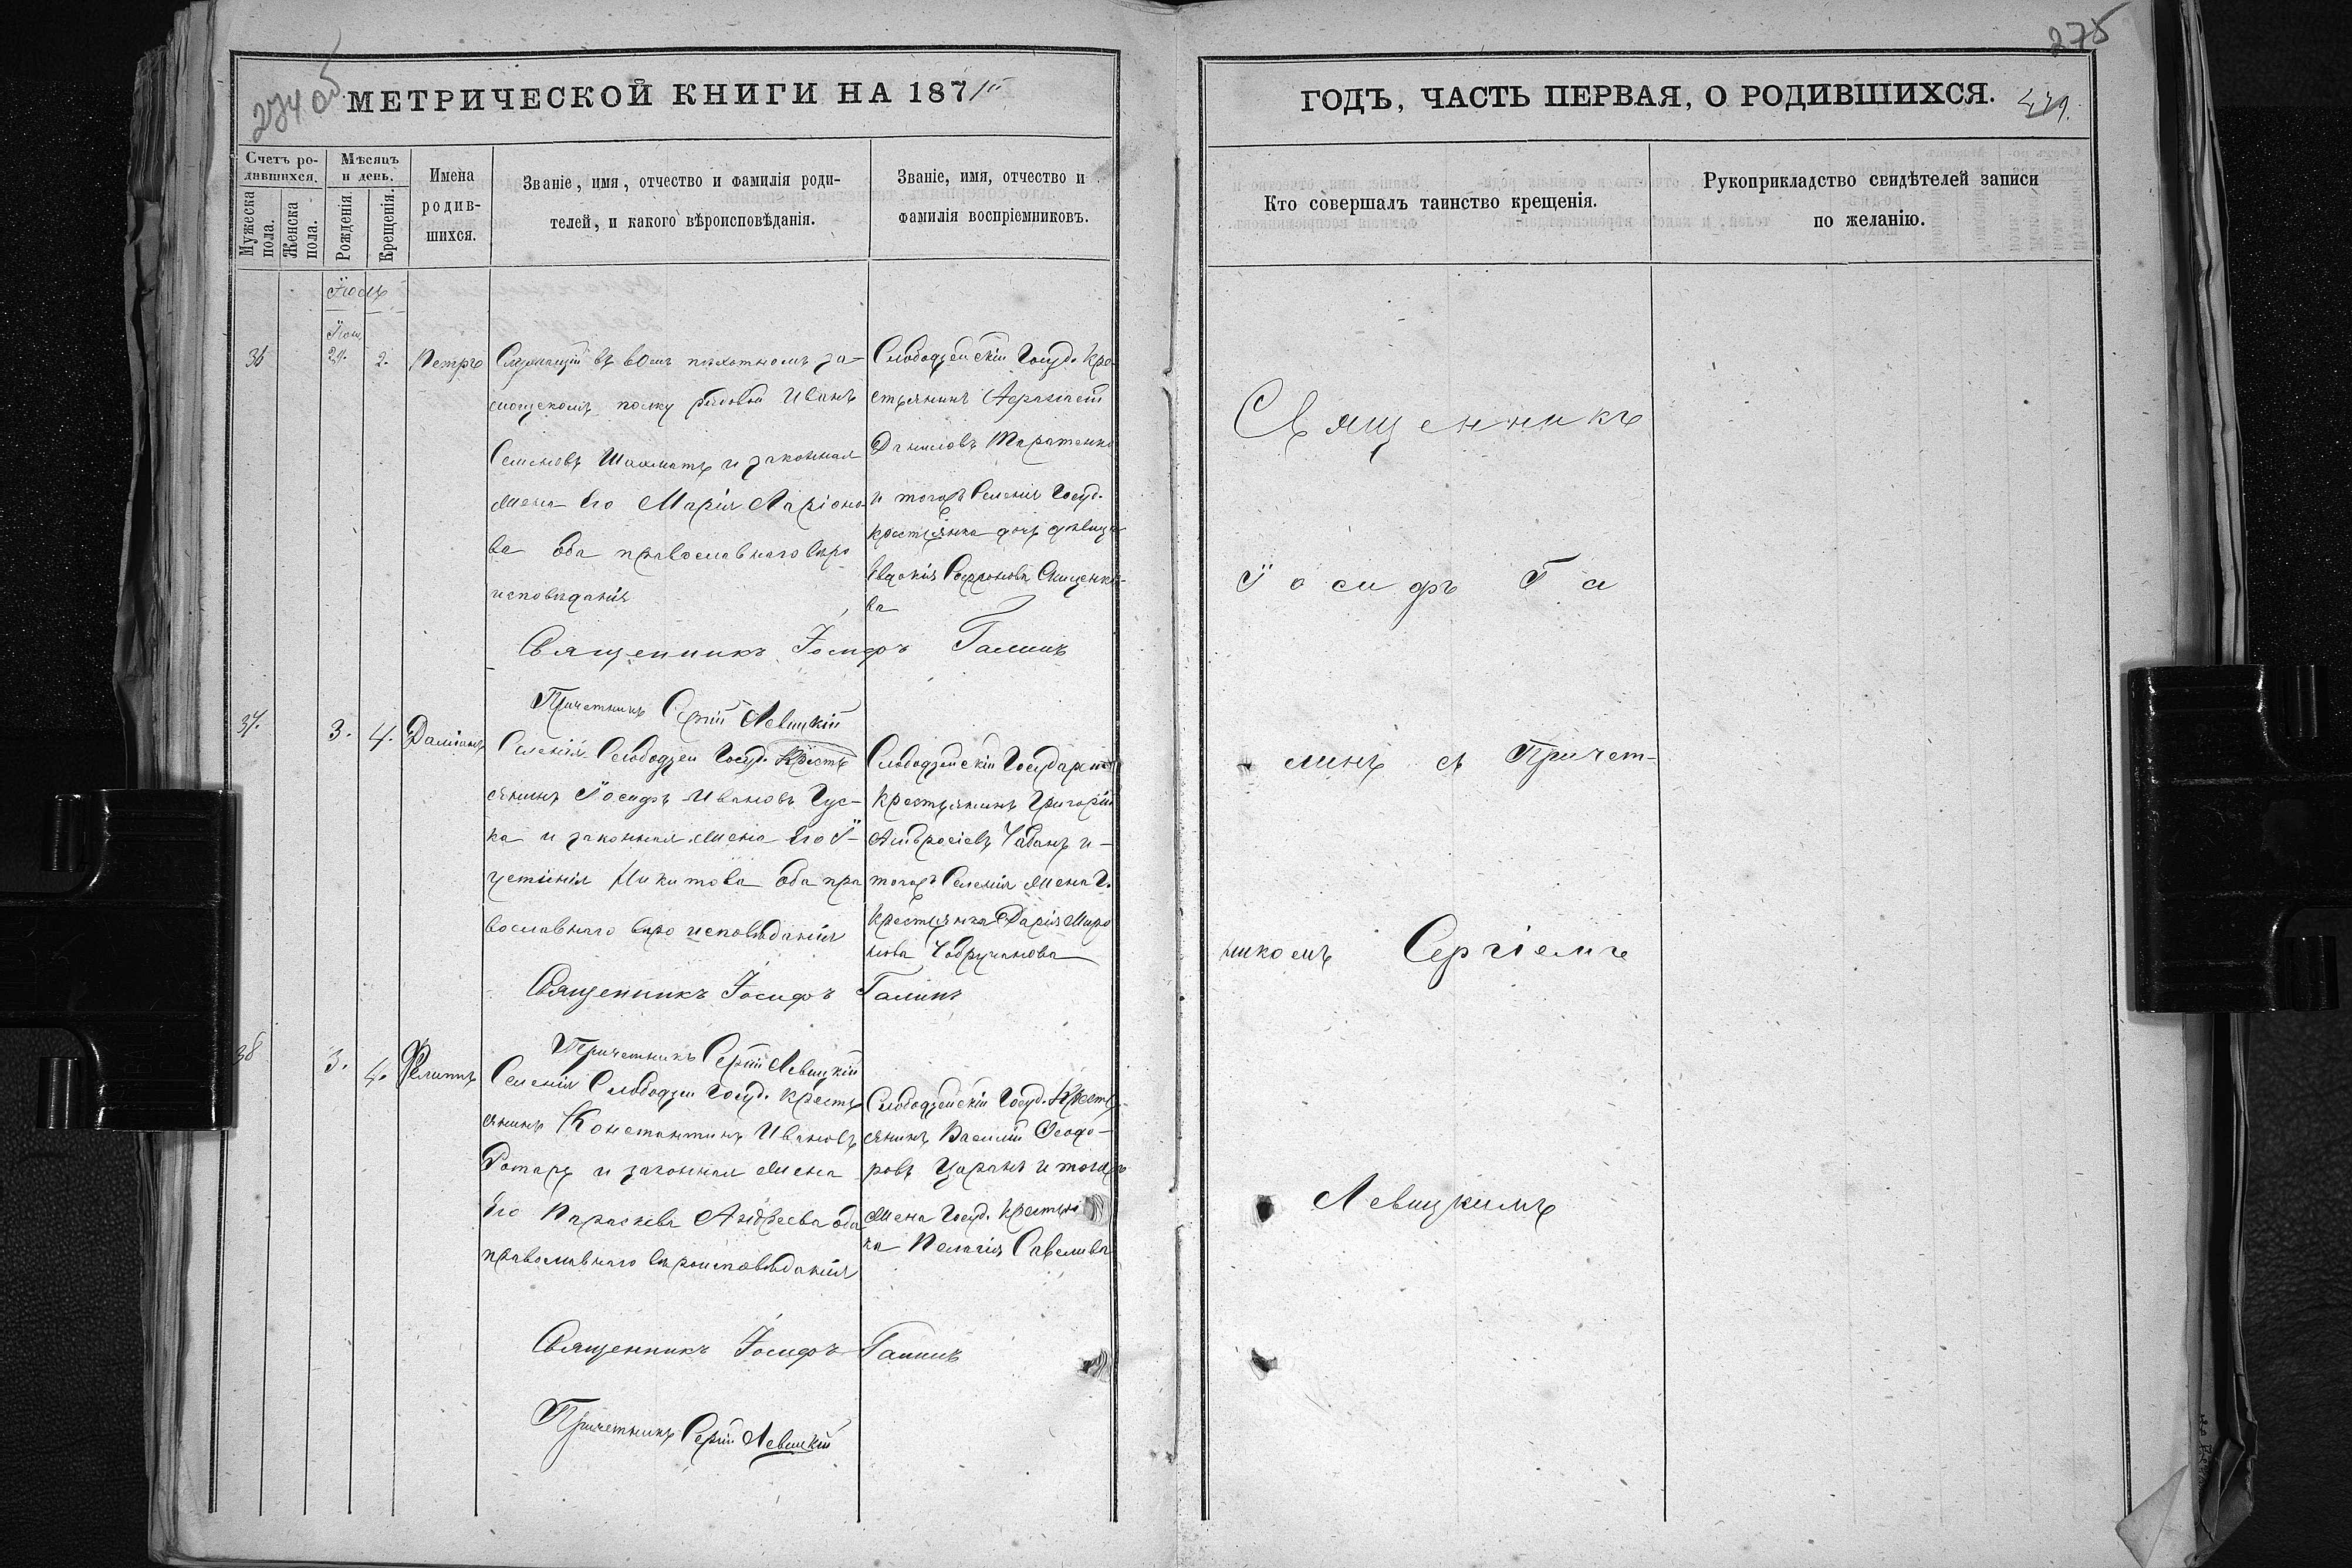 274 об
275
МЕТРИЧЕСКОЙ КНИГИ НА 187
ГОДЪ, ЧАСТЬ ПЕРВАЯ, О РОДИВШИХСЯ.
Счетъ ро-
дившихся.
Мужеска пола.
Женска пола.
Мѣсяцъ
и день.
Рожденія
Крещенія.
Имена
родив-
шихся.
Званіе, имя, отчество и фамилія роди-
телей, и какого вѣроисповѣданія.
Званіе, имя, отчество и
фамилія воспріемниковъ.
Кто совершалъ таинство крещенія.
Рукоприкладство свидѣтелей записи
по желанію.
Іюль
36
29.
2.
Петръ
Служащій въ
полку рядовой Иванъ
Семеновъ Шахматъ и законная
жена его Марія Ларіоно-
ва оба православнаго вѣро
исповѣданія
Слободзейскій Госуд. Кре-
стьянинъ
Даниловъ Таратенко
и тогожъ Селенія Госуд.
крестьянка дочь дѣвица
Евдокія
ва
Священникъ Іосифъ Галинъ
Причетникъ Сергій Левицкій
37.
3.
4.
Даміанъ
Селенія Слободзеи Госуд. Кресть
янинъ Іосифъ Ивановъ Гус-
ка и законная жена его І-
устинія Никитова оба пра
вославнаго вѣро исповѣданія
Слободзейскій Государст
Крестьянинъ Григорій
Амвросіевъ Чабанъ и
тогожъ Селенія жена Г.
Крестьянка Дарія Миро
нова Чобручанова
Священникъ Іосифъ Галинъ
Причетникъ Сергій Левицкій
38
3.
4.
Филиппъ
Селенія Слободзеи Госуд. Кресть
янинъ Константинъ Ивановъ
Ротарь и законная жена
его Параскева Андреева оба
православнаго вѣроисповѣданія
Слободзейскій Госуд. Кресть
янинъ Василій Ѳеодо-
ровъ Царанъ и тогожъ
жена Госуд. Крестьян
ка Пелагія Савелиева
Священникъ Іосифъ Галинъ
Причетникъ Сергій Левицкій
Священникъ
Іосифъ Га
линъ съ Причет-
никомъ Сергіемъ
Левицкимъ